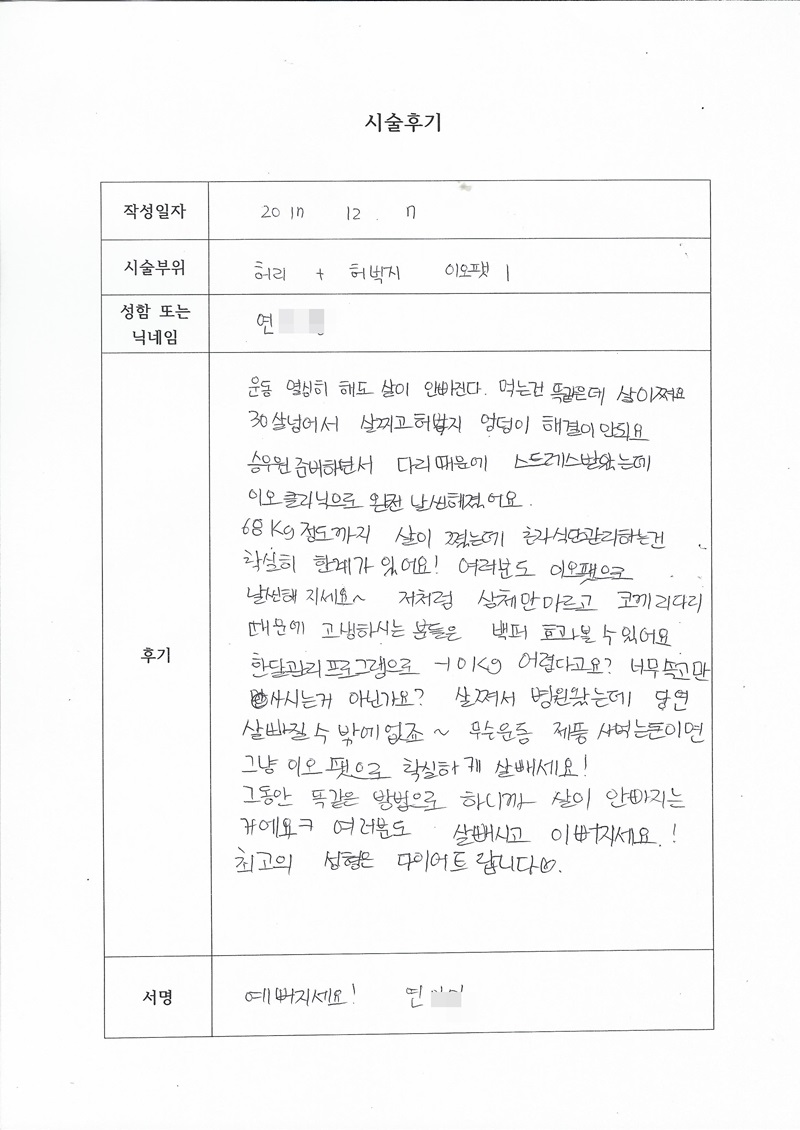 시술후기
작성일자 2017 12. 7
시술부위 허리 + 허벅지 이오팻 1
성함 또는 닉네임 연
후기
운동 열심히 해도 살이 안빠진다. 먹는건 똑같은데 살이쪄요
30살넘어서 살찌고허벅지 엉덩이 해결이안되요
승무원준비하면서 다리때문에 스트레스받았는데
이오클리닉으로 완전 날씬해졌어요.
68Kg정도까지 살이 쪘는데 혼자식단관리하는건
확실히 한계가있어요! 여러분도 이오팻으로
날씬해 지세요~ 저처럼 상체만마르고 코끼리다리
때문에 고생하시는 분들은 백퍼 효과볼 수 있어요
한달관리프로그램으로 -10Kg 어렵다고요? 너무속고만
사시는거 아닌가요? 살쪄서 병원왔는데 당연
살빠질수 밖에없죠~ 무슨운동 제품 사먹는돈이면
그냥이오팻으로 확실하게 살빼세요!
그동안 똑같은 방법으로 하니까 살이 안빠지는
거에요ㅋ 여러분도 살빼시고 이뻐지세요.!
최고의 성형은 다이어트 랍니다♡.
서명 예뻐지세요! 연